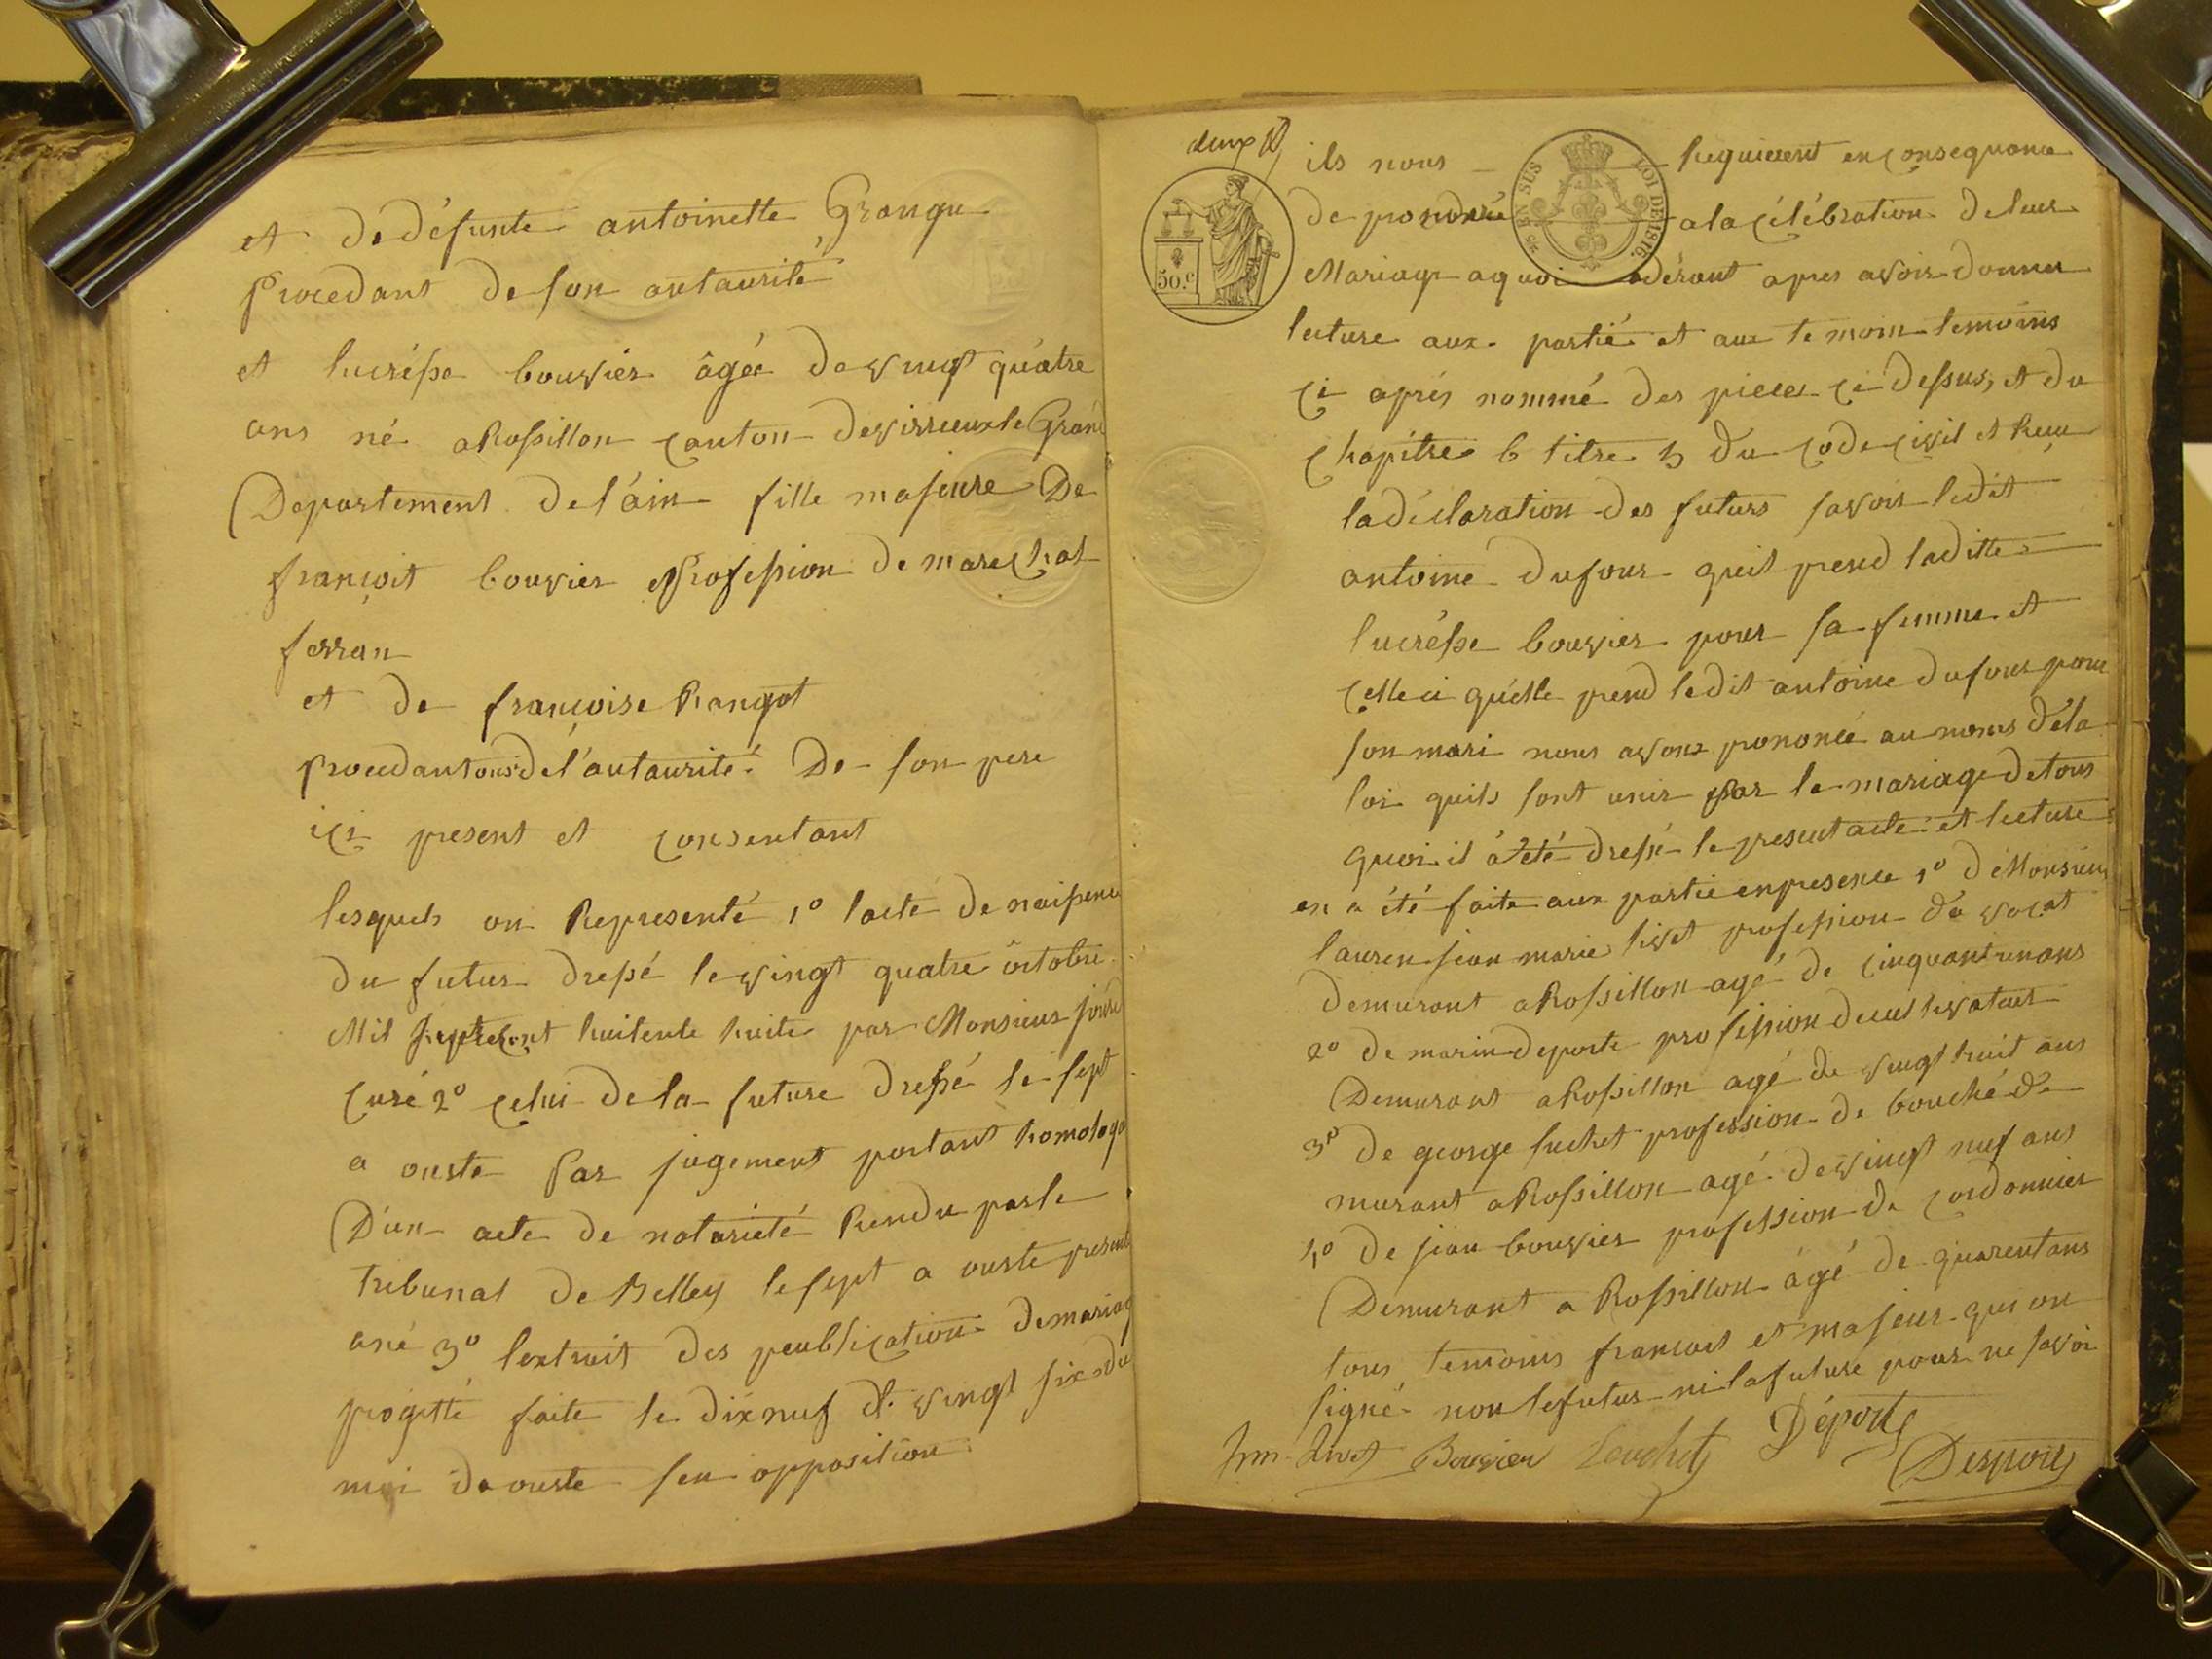 et de défunte antoinette Grange
procedant de son autaurité
et lucrésse bouvier âgée de vingt quatre
ans né a Rossillon canton de virrieux le Grand
Departement de l'ain fille majeure De
françoit bouvier profession de marechal
ferran
et de françoise Rangot
procedant de l'autaurité De son pere
ici present et consentant
lesquels on Representé 1º lacté de naissence
du futur dressé le vingt quatre octobre
Mil septecent huitente huite par Monsieur
curé 2º celui de la future dressé le sept
a ouste par jugement portant homologa
D'un acte de notarieté Rendu par le
tribunal de Belley le sept a ouste present
ané 3º lextrait des peublication de mariag
progetté faite le dix neuf et vingt six du
moi de ouste sen opposition
deux
ils nous requierent en consequance
EN SUS LOI DE 1816.
de a la célébration de leur
50.c
Mariage a quoi adérant apres avoir donner
lecture aux partié et aux temoin temoins
ci aprés nommé des pieces ci dessus, et du
chapitre 6 titre 5 du code civil et Reçu
la déclaration des futurs savoir ledit
antoine dufour queil prend laditte
lucrésse bouvier pour sa femme et
celle ci qu'elle prend ledit antoine dufour pour
son mari nous avons prononcé au noms de la
loi queils sont unir par le mariage de tous
quoi il a été dressé le present acte et lecture
en a été faite aux partie en presence 1º de Monsieur
lauren jean marie livet profession d'avocat
demurant a Rossillon agé de cinquant unans
2º de marin deporte profession de cultivateur
Demurant a Rossillon agé de vingt huit ans
3º de george luchet profession de bouché de
murant a Rossillon agé de vingt nuf ans
4º de jean bouvier profession de cordonnier
Demurant a Rossillon âgé de quarent ans
tous temoins francois et majeur qui on
signé non le futur ni la future pour ne savoi
Livet Bouvier Leuchet Déporte
Desporte